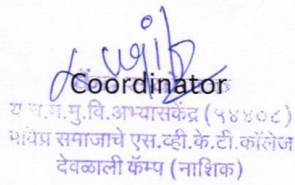 Coordinator
य.च.म.मु.वि.अभ्यासकेंद्र (५४४०८)
मविप्र समाजाचे एस.व्ही.के.टी.कॉलेज
देवळाली कॅम्प (नाशिक)